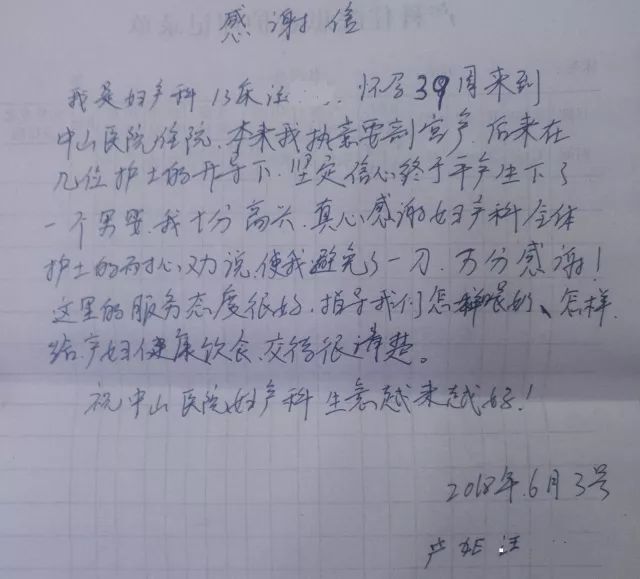 感谢信
我是妇产科13床汪.... 怀孕39周来到
中山医院住院,本来我执意要剖宫产,后来在
几位护士的开导下,坚定信心终于平产生下了
一个男婴,我十分高兴,真心感谢妇产科全体
护士的耐心劝说,使我避免了一刀,万分感谢!
这里的服务态度很好,指导我们怎样喂奶、怎样
给产妇健康饮食,交待很清楚。
祝中山医院妇产科生意越来越好!
2018年6月3号
产妇 汪